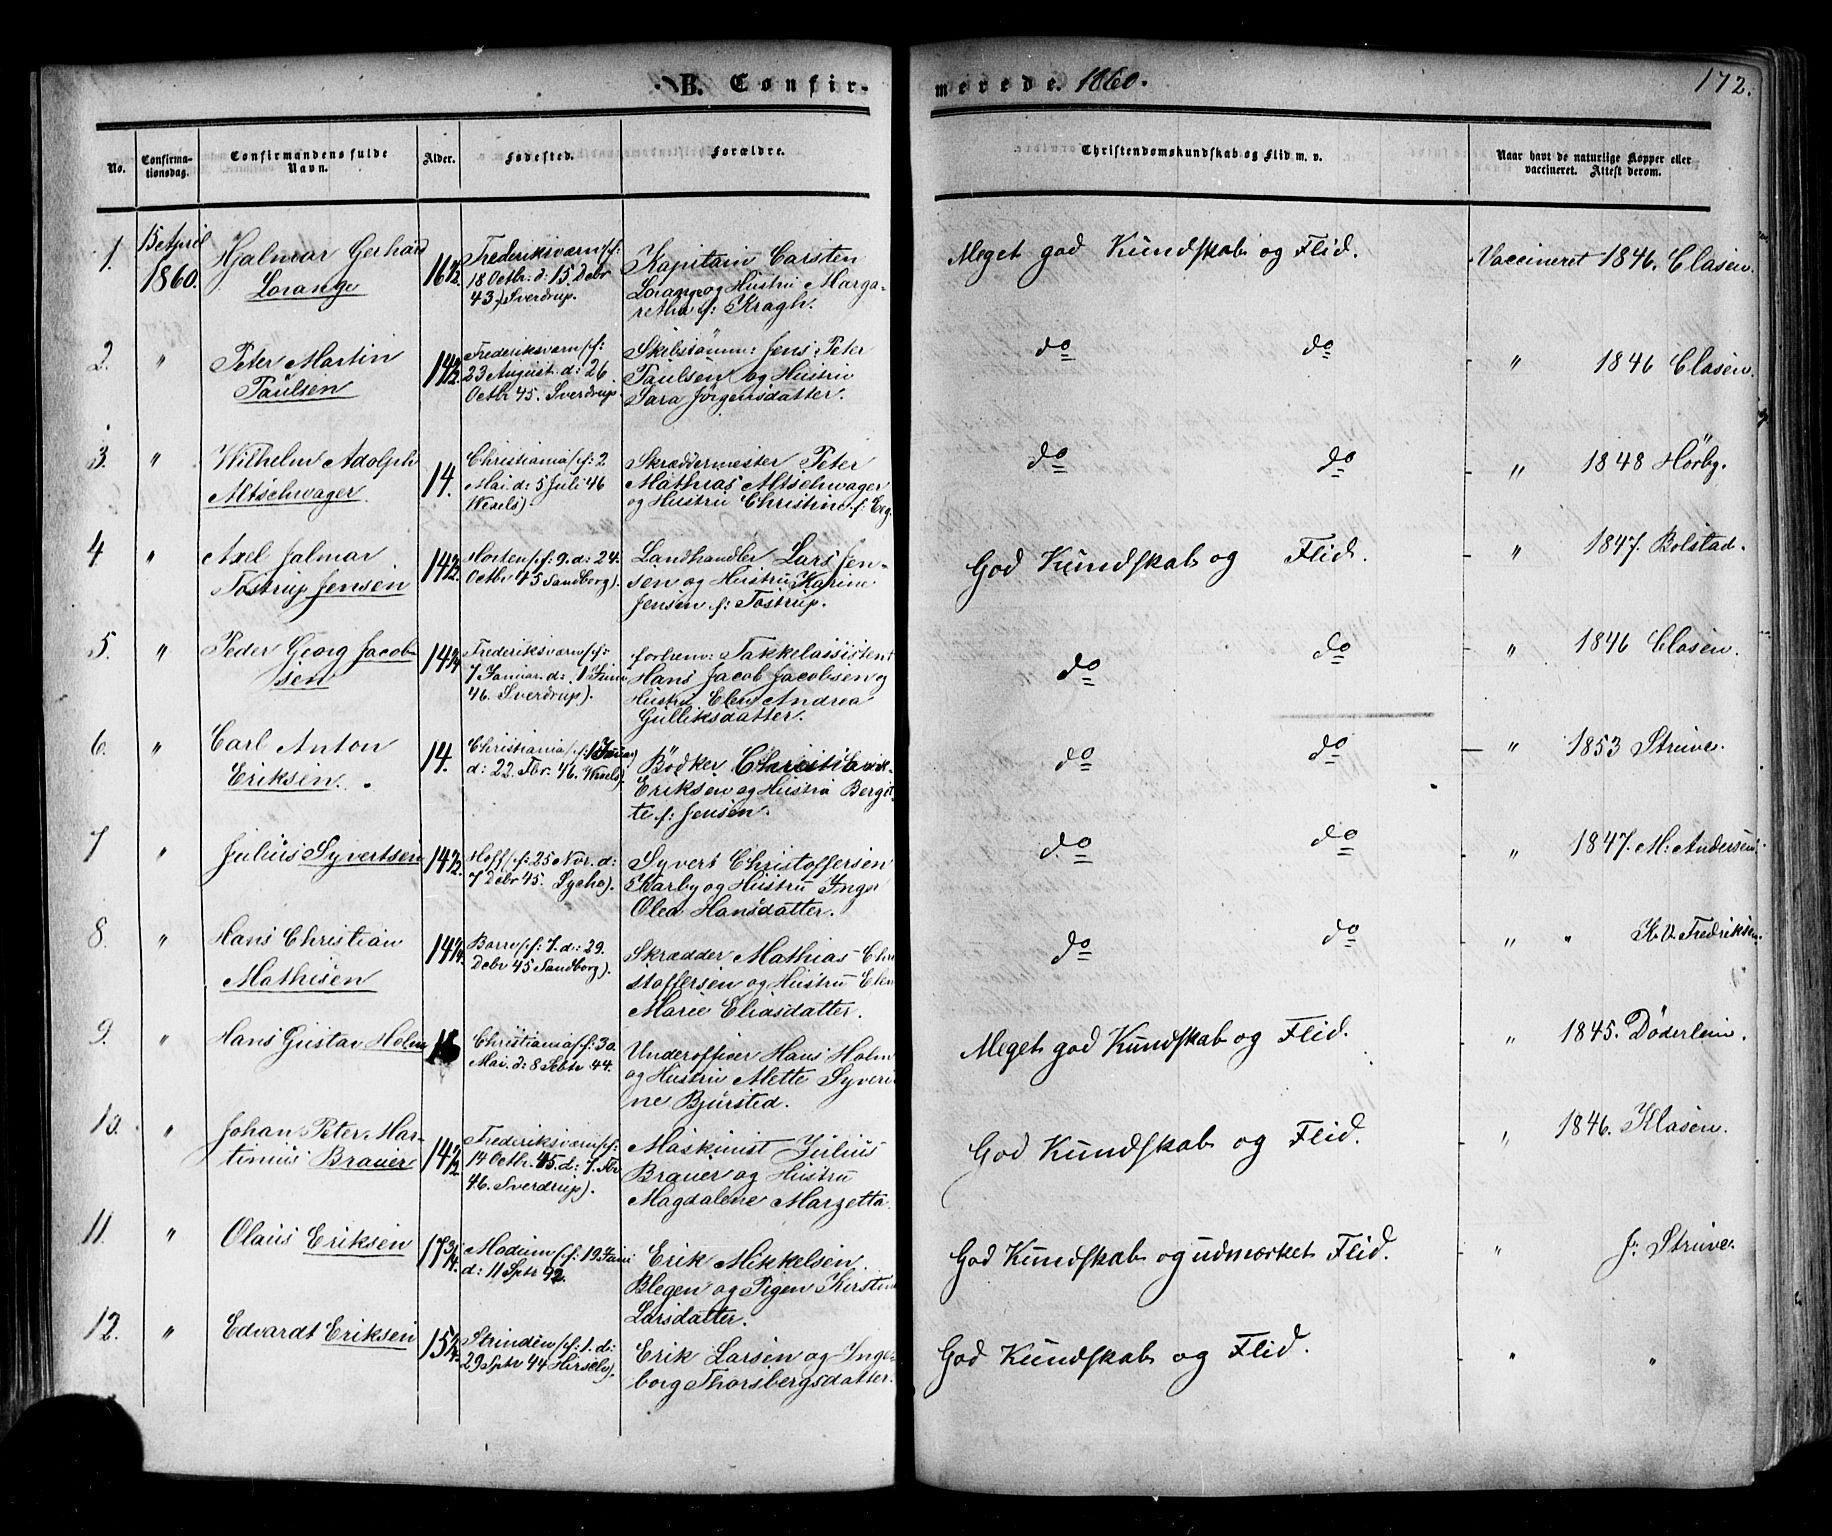 B. Confir-
merede. 1860.
172.
No.
Confirma-
tionsdag.
Confirmandens fulde
Navn.
Alder.
Fødested.
Forældre.
Christendomskundskab og Flid m. v.
Naar havt de naturlige Kopper eller
vaccineret. Attest derom.
1.
15 April
1860.
Hjalmar Gerhard
Lorange
16 1/2
Frederiksværn (f:
18 Octbr. d: 15 Debr
43) Sverdrup.
Kapitain Carsten
Lorange og Hustru Marga-
retha f: Kragh.
Meget god Kundskab og Flid.
Vaccineret 1846. Clasen.
2.
"
Peter Martin
Paulsen
14 1/2
Frederiksværn (f:
23 August d: 26
Octbr 45. Sverdrup.
Skibstømm: Jens Peter
Paulsen og Hustru
Sara Jørgensdatter.
do do
" 1846 Clasen.
3.
"
Wilhelm Adolph
Altschwager.
14.
Christiania (f: 2
Mai. d: 5 Juli 46
Wexels).
Skræddermester Peter
Mathias Altschwager
og Hustru Christine f: Erg
do do
" 1848 Hørby.
4
"
Axel Jalmar
Tostrup Jensen
14 1/2
Horten (f: 9. d: 24.
Octbr 45 Sandborg).
Landhandler Lars Jen-
sen og Hustru Karine
Jensen f: Tostrup.
God Kundskab og Flid.
" 1847. Bolstad.
5.
"
Peder Georg Jacob-
sen
14 1/4
Frederiksværn (f:
7 Januar. d: 1 Juni
46. Sverdrup).
forhenv: Takkelassistent
Hans Jacob Jacobsen og
Hustru Elen Andrea
Gulliksdatter.
do do
" 1846 Clasen.
6.
"
Carl Anton
Eriksen.
14.
Christiania (f: 1 Januar
d: 22. Fbr. 46. Wexels).
Bødker Christian
Eriksen og Hustru Bergit-
te f: Jensen.
do do
" 1853 Struve.
7
"
Julius Syvertsen
14 1/2
Hoff (f: 25 Nov. d:
7 Debr 45. Lycho).
Syvert Christoffersen
Karby og Hustru Inger
Olea Hansdatter.
do do
" 1847. M. Andersen.
8.
"
Hans Christian
Mathisen
14 1/4
Borre (f: 7. d: 29.
Debr 45 Sandborg).
Skrædder Mathias Chri
stoffersen og Hustru Elen
Marie Eliasdatter.
do do
" " K. V. Fredriksen.
9.
"
Hans Gustav Holm
Christiania (f: 30
Mai. d: 8 Sebtr 44.
Underofficer Hans Holm
og Hustru Mette Syveri
ne Bjursted.
Meget god Kundskab og Flid.
" 1845. Døderlein.
10.
"
Johan Peter Mar-
tinius Brauer
14 1/2
Frederiksværn (f:
14 Octbr. 45. d: 7. Fbr
46. Sverdrup).
Maskinist Julius
Brauer og Hustru
Magdalene Margetta
God Kundskab og Flid.
" 1846. Klasen.
11.
"
Olaus Eriksen
17 3/4.
Modum (f: 19 Juni
d: 11 Sptr 42.
Erik Mikkelsen
Blegen og Pigen Kirstine
Larsdatter.
God Kundskab og udmærket Flid.
" J. Struve.
12.
"
Edvardt Eriksen
15 1/4.
Strinden (f: 1. d:
29 Sptr 44 Hirsch).
Erik Larsen og Inge-
borg Thorsbergsdatter.
God Kundskab og Flid.
" "